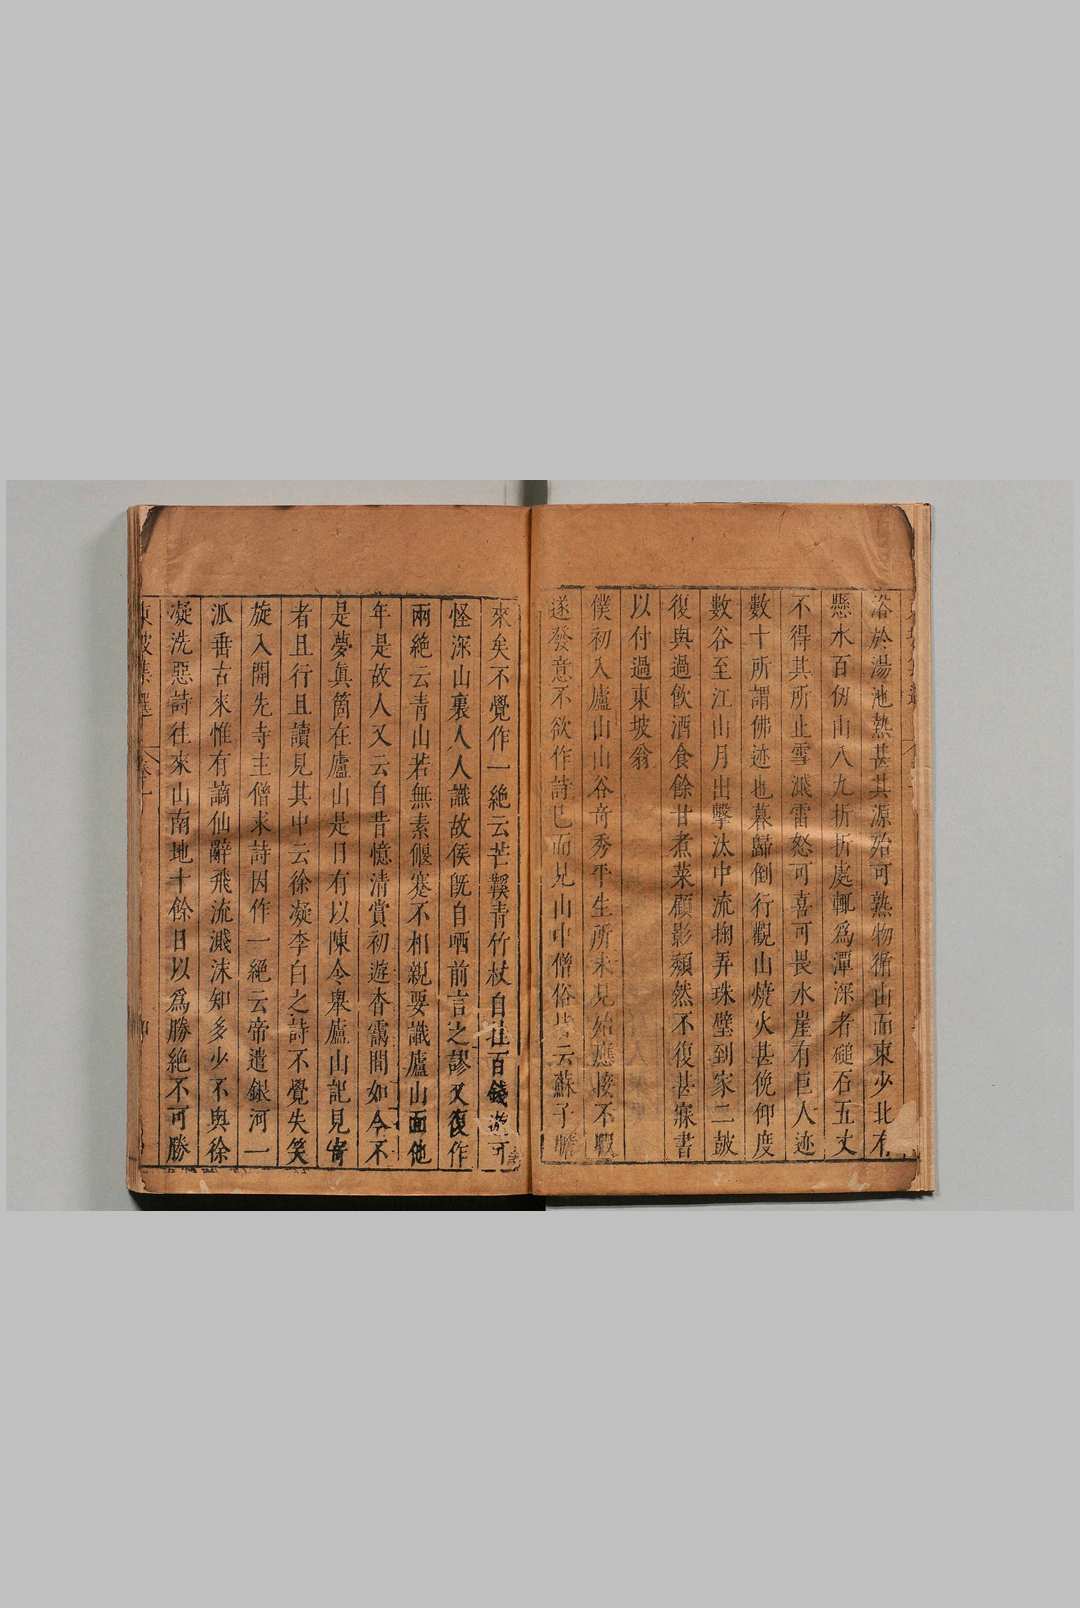 浴於湯池熱甚其源殆可熟物循山而東少北有
懸水百仞山八九折折處輒爲潭深者磓石五丈
不得其所止雪濺雷怒可喜可畏水崖有巨人迹
數十所謂佛迹也暮歸倒行觀山燒火甚俛仰度
數谷至江山月出擊汰中流掬弄珠璧到家二鼓
復與過飲酒食餘甘煮菜顧影頹然不復甚寐書
以付過東坡翁
僕初入廬山山谷奇秀平生所未見殆應接不暇
遂發意不欲作詩已而見山中僧俗皆云蘇子瞻
來矣不覺作一絕云芒鞵青竹杖自挂百錢遊可
怪深山裏人人識故侯旣自哂前言之謬又復作
兩絕云青山若無素偃蹇不相親要識廬山面他
年是故人又云自昔憶清賞初遊杳靄間如今不
是夢眞箇在廬山是日有以陳令舉廬山記見寄
者且行且讀見其中云徐凝李白之詩不覺失笑
旋入開先寺主僧求詩因作一絕云帝遣銀河一
派垂古來惟有謫仙辭飛流濺沫知多少不與徐
凝洗惡詩往來山南地十餘日以爲勝絕不可勝
東坡集選 卷